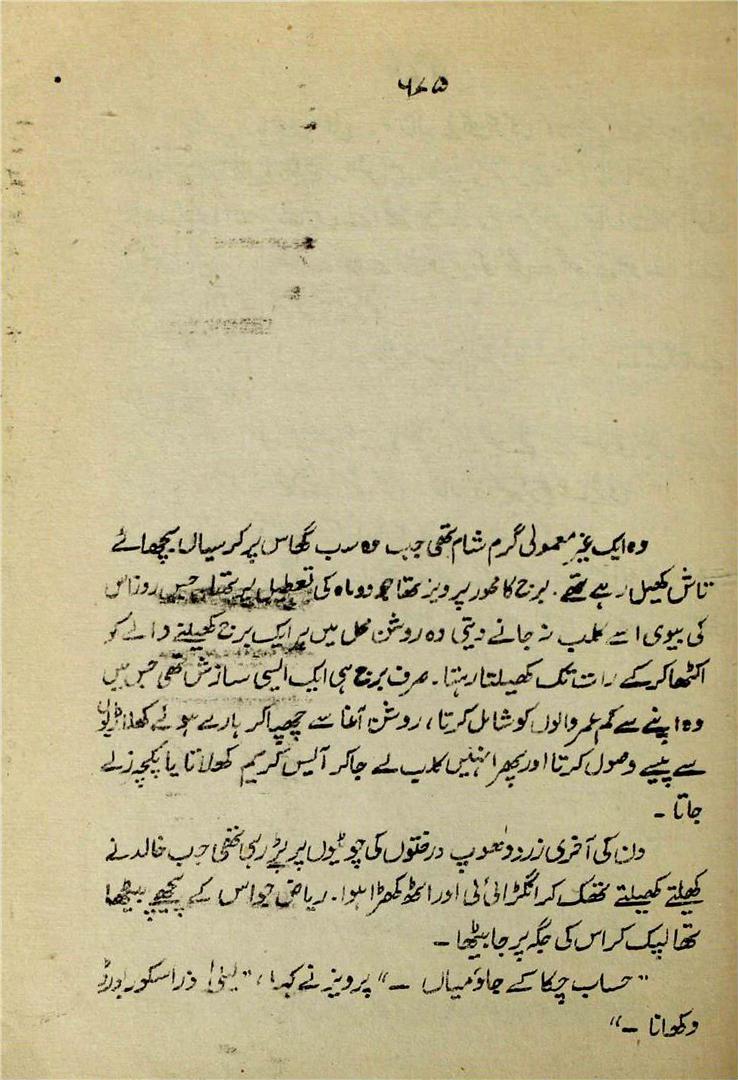 ۶۷۵
وہ ایک غیر معمولی گرم شام تھی جب وہ سب گھاس پر کرسیاں بچھائے
تاش کھیل رہے تھے۔ برج کا محور پرویز تھا جو دو ماہ کی تعطیل پر تھا۔ جس روز اس
کی بیوی اسے کلب نہ جانے دیتی وہ روشن محل میں ہر ایک برج کھیلنے والے کو
اکٹھا کرکے رات تک کھیلتا رہتا۔ صرف برج ہی ایک ایسی سازش تھی جس میں
وہ اپنے سے کم عمر والوں کو شامل کرتا، روشن آغا سے چھپا کر ہارے ہوئے کھلاڑیوں
سے پیسے وصول کرتا اور پھر انہیں کلب لے جا کر آئیس کریم کھلاتا یا پکچر لے
جاتا ۔
دن کی آخری زرد دھوپ درختوں کی چوٹیوں پر پڑ رہی تھی جب خالد نے
کھیلتے کھیلتے تھک کر انگڑائی لی اور اٹھ کھڑا ہوا۔ ریاض جو اس کے پیچھے بیٹھا
تھا لپک کر اس کی جگہ پر جا بیٹھا ۔
"حساب چکا کے جاؤ میاں ۔" پرویز نے کہا، " ذرا سکور بورڈ
دکھانا ۔"